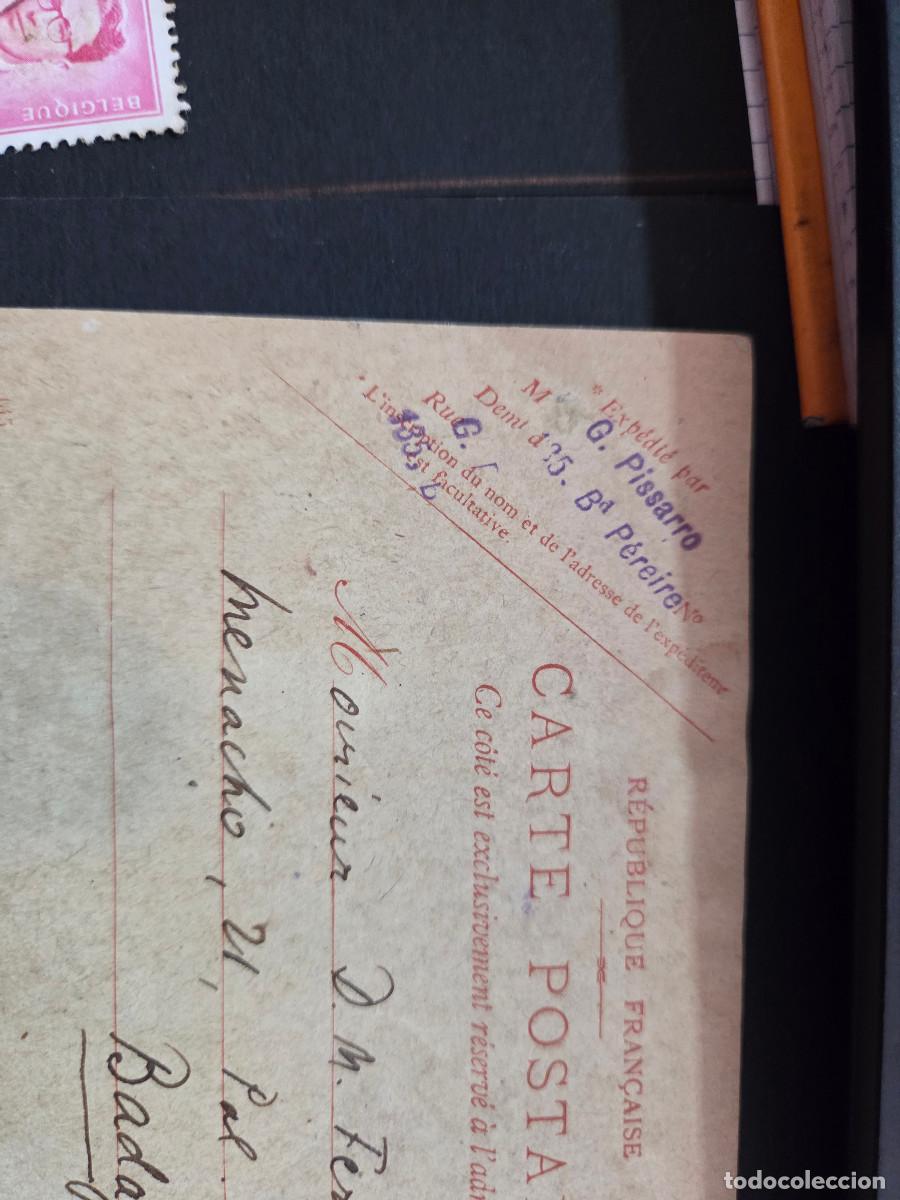 BELGIQUE
*Expédié par
M G. Pissarro
Demt à 135. Bd Péreire No
Rue G.
L'inscription du nom et de l'adresse de l'expéditeur
est facultative.
RÉPUBLIQUE FRANÇAISE
CARTE POSTA
Ce côté est exclusivement réservé à l'adr
Monsieur D. M. Fer
Menacho, 21, Pal.
Bada
todocoleccion